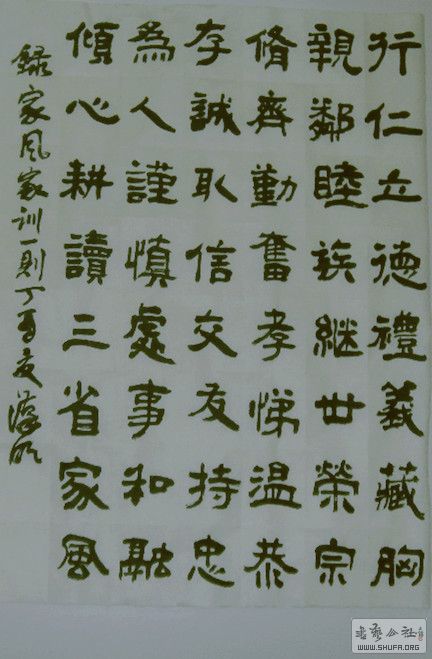 行仁立德禮義藏胸
親鄰睦族繼世榮宗
脩齊勤奮孝悌溫恭
存誠取信交友持忠
為人謹慎處事和融
傾心耕讀三省家風
錄家風家训一則丁酉夏
書藝公社
WWW.SHUFA.ORG